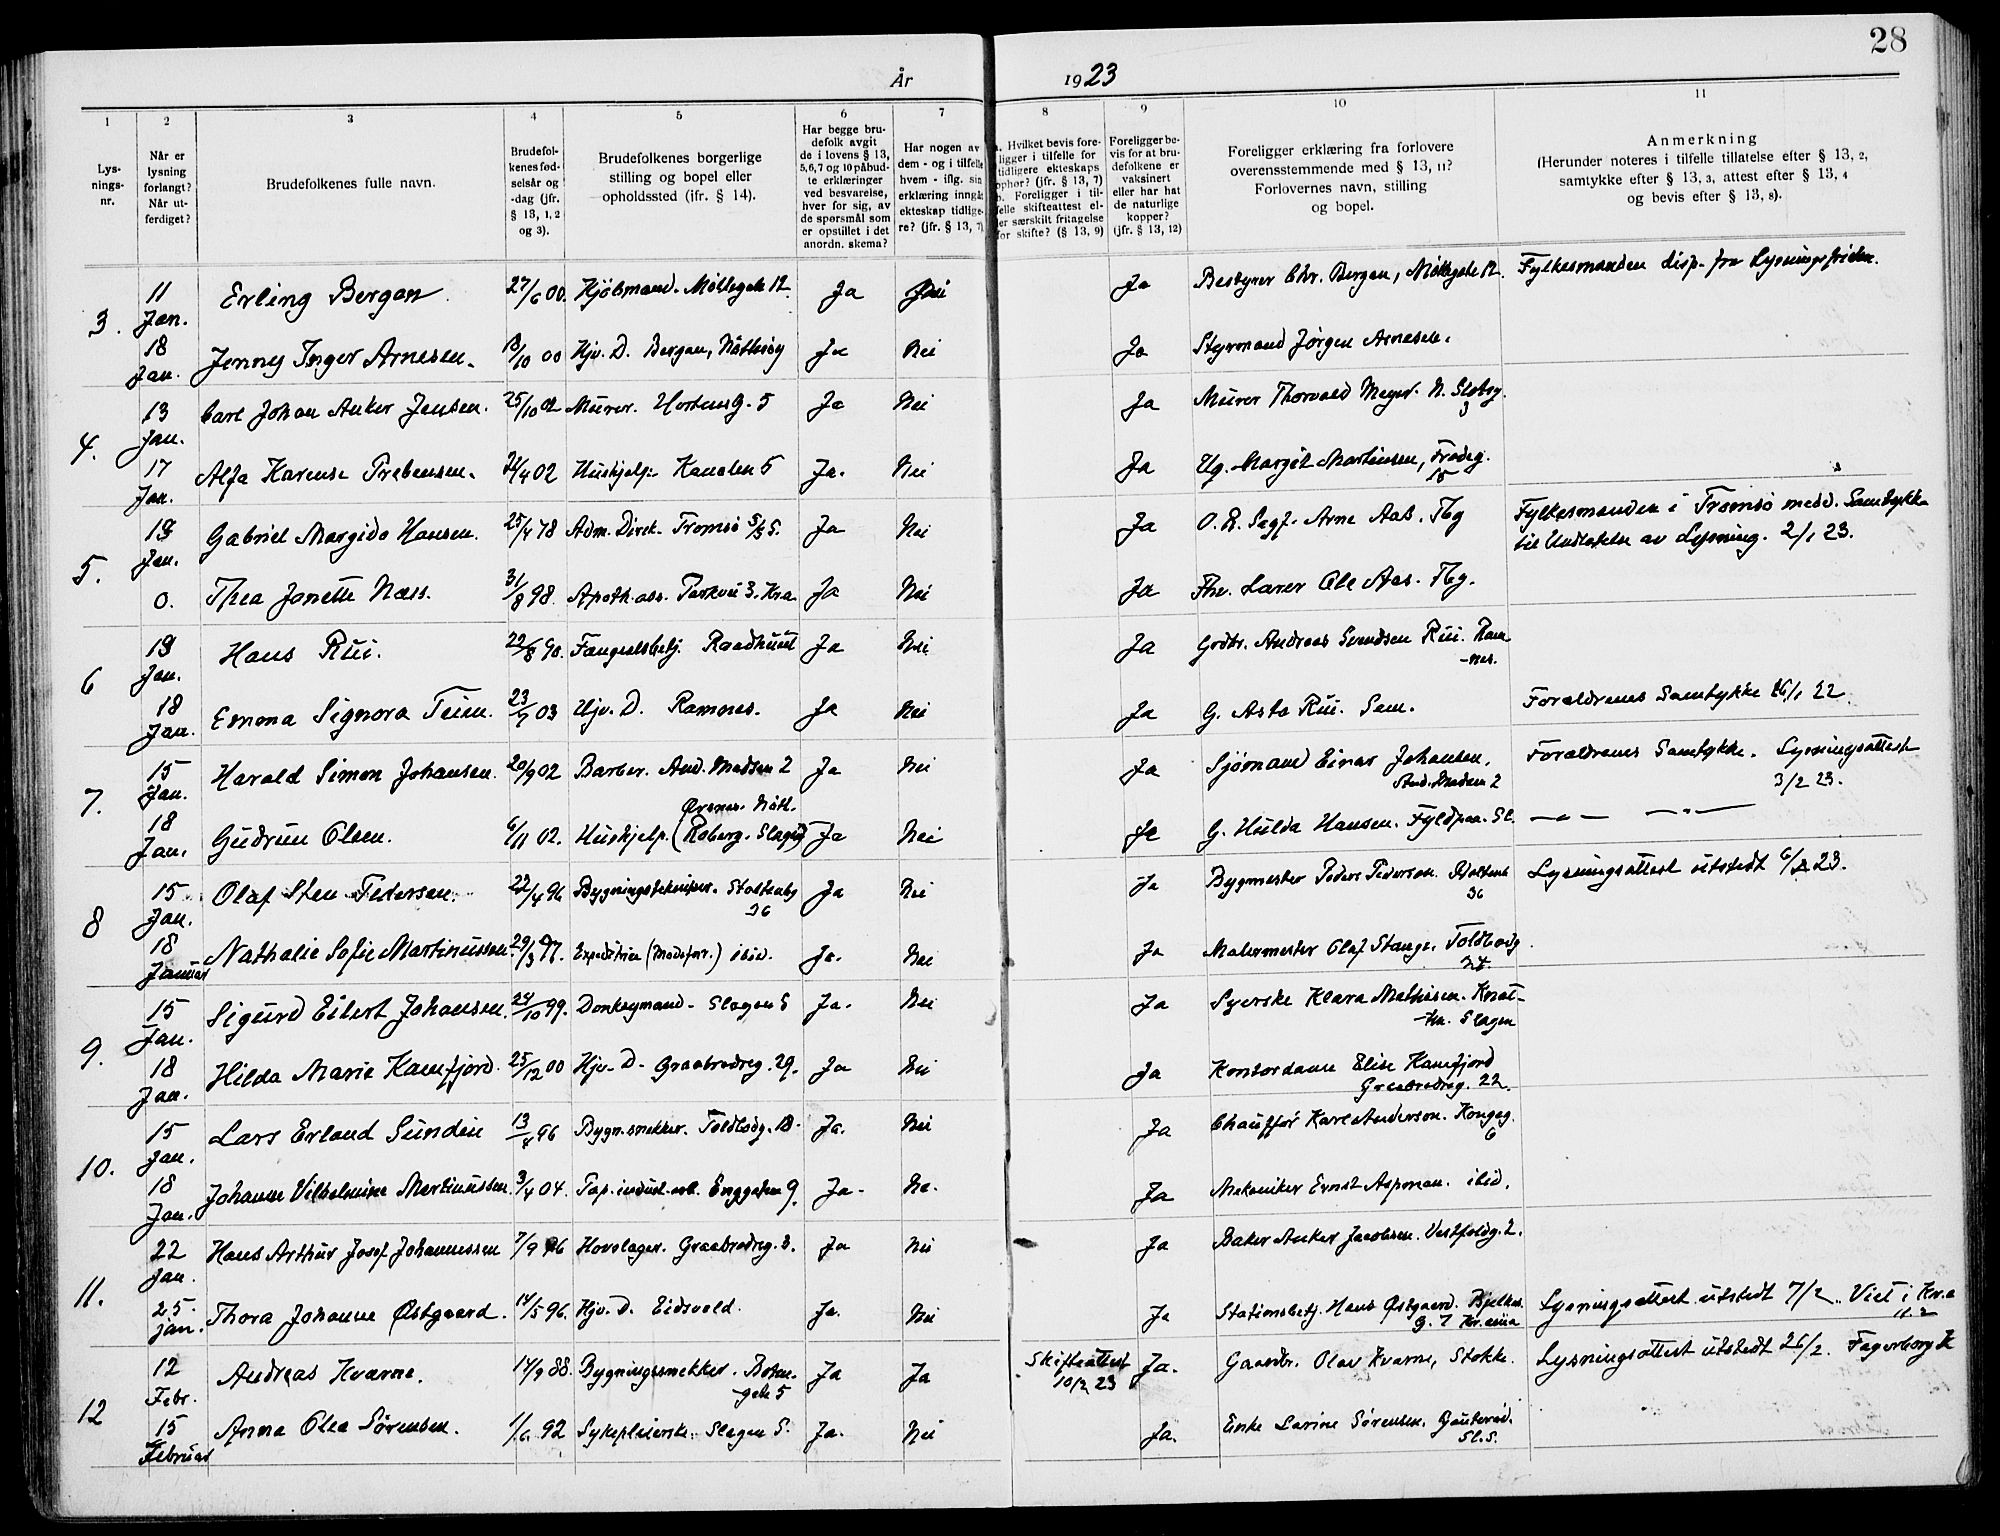 28
År 1923
1 2 3 4 5 6 7 8 9 10 11
Lys-
nings-
nr.
Når er
lysning
forlangt?
Når ut-
ferdiget?
Brudefolkenes fulle navn.
Brudefol-
kenes fød-
selsår og
-dag (jfr.
§ 13, 1, 2
og 3).
Brudefolkenes borgerlige
stilling og bopel eller
opholdssted (jfr. § 14).
Har begge bru-
defolk avgit
de i lovens § 13,
5, 6, 7 og 10 påbud-
te erklæringer
ved besvarelse,
hver for sig, av
de spørsmål som
er opstillet i det
anordn. skema?
Har nogen av
dem - og i tilfelle
hvem - iflg. sin
erklæring inngåt
ekteskap tidlige-
re? (jfr. § 13, 7)
a. Hvilket bevis fore-
ligger i tilfelle for
tidligere ekteskaps
ophør? (jfr. § 13, 7)
b. Foreligger i til-
felle skifteattest el-
ler særskilt fritagelse
for skifte? (§ 13, 9)
Foreligger be-
vis for at bru-
defolkene er
vaksinert
eller har hat
de naturlige
kopper?
(jfr. § 13, 12)
Foreligger erklæring fra forlovere
overensstemmende med § 13, 11?
Forlovernes navn, stilling
og bopel.
Anmerkning
(Herunder noteres i tilfelle tillatelse efter § 13, 2,
samtykke efter § 13, 3, attest efter § 13, 4
og bevis efter § 13, 8).
3. 11 Jan. Erling Bergan 27/6 00. Kjøbmand. Møllegate 12 Ja Nei Ja Bestyrer Chr. Bergan, Møllegate 12. Fylkesmanden disp. fra Lysningsfristen.
18 Jan. Jenny Inger Arnesen. 18/10 00 Hjv. D. Bergan, Nøtterøy Ja Nei Ja Styrmand Jørgen Arnesen.
4. 13 Jan. Carl Johan Anker Jensen. 25/10 02 Murer. Hortensg. 5 Ja Nei Ja Murer Thorvald Meyer. N.
3
17 Jan. Alfa Karense Prebensen. 02 Huskjelp. Kanalen 5 Ja. Nei Ja Ug. Margit Martinsen, Frodeg.
15
5. 19 Jan. Gabriel Margido Hansen. 25/4 78 Adm. Direk. Tromsø Ja Nei Ja O. R. Sagf. Arne Aas. Tbg Fylkesmanden i Tromsø medd. Samtykke
til Undlatelse av Lysning. 2/1 23.
0. Thea Janette Næss. 31/8 98. Apoth. ass. Parkvei 3. Kra Ja Nei Ja Fhv. Lærer Ole Aas. Tbg.
6 19 Jan. Hans Rui. 22/8 90. Fængselsbetj. Raadhuset Ja Nei Ja Grdbr. Andreas Svendsen Rui. Ram-
-nes.
18 Jan. Emma Signora Teien. 23/7 03 Hjv. D. Ramnes. Ja Nei Ja G. Asta Rui. Sem. Forældrenes Samtykke 16/1 22.
7. 15 Jan. Harald Simon Johansen. 20/9 02 Barber. And. Madsen 2 Ja Nei Ja Sjømand Einar Johansen,
And. Madsen 2
Forældrenes Samtykke. Lysningsattest
3/2 23.
Ørsnes. Nøtt.
18 Jan. Gudrun Olsen. 6/11 02. Huskjelp. (Roberg. Slagen) Ja Nei Ja G. Hulda Hansen. Fyldpaa. Sl. — „ — — „ —
8 15 Jan. Olaf Sten Pedersen. 22/4 96 Bygningstekniker. Stoltenbg
36
Ja Nei Ja Bygmester Peder Pedersen. Stoltenb
36
Lysningsattest utstedt 6/2 23.
18 Januar Nathalie Sofie Martinussen. 29/3 97. Expeditrice (Modeforr.) ibid. Ja. Nei Ja Malermester Olaf Stange. Toldbodg
9. 15 Jan. Sigurd Eilert Johansen. 24/10 99. Donkeymand - Slagen S Ja. Nei Ja Syerske Klara Mathisen. Knat-
-ten. Slagen
18 Jan. Hilda Marie Kamfjord. 25/12 00 Hjv. D. Graabrødreg. 29. Ja Nei Ja Kontordame Elise Kamfjord
Graabrødreg. 22.
10. 15 Jan. Lars Erland Sundin 13/ 96 Bygn.snekker. Toldbodg. 18. Ja. Nei Ja Chauffør Karl Anderson. Kongeg.
6
18 Jan. Johanne Vilhelmine Martinussen. 3/4 04. Pap. indust. arb. Enggaten 9. Ja. Ne. Ja Mekaniker Ernst Aspman. ibid.
11. 22 Jan. Hans Arthur Josef Johannessen 7/9 96 Hovslager. Graabrødreg. 3. Ja Nei Ja Baker Anker Jacobsen. Vestfoldg. 2.
25. jan. Thora Johanne Østgaard. 14/5 96. Hjv. D. Eidsvold. Ja. Nei Ja Stationsbetj. Hans Østgaard. Bjelkes
g. 7 Kr.ania
Lysningsattest utstedt 7/2. Viet i Kr.a
11.2
12 12 Febr. Andreas Kvarne. 14/9 88. Bygningssnekker. Boten-
-gate 5
Ja Ja Skifteattest
10/2 23
Ja. Gaardbr. Olav Kvarne, Stokke. Lysningsattest utstedt 26/2. Fagerborg K
15 Februar Anna Olea Sørensen. 1/6 92 Sykepleierske. Slagen S. Ja. Nei Ja. Enke Larine Sørensen. Gauterød.
Sl. S.